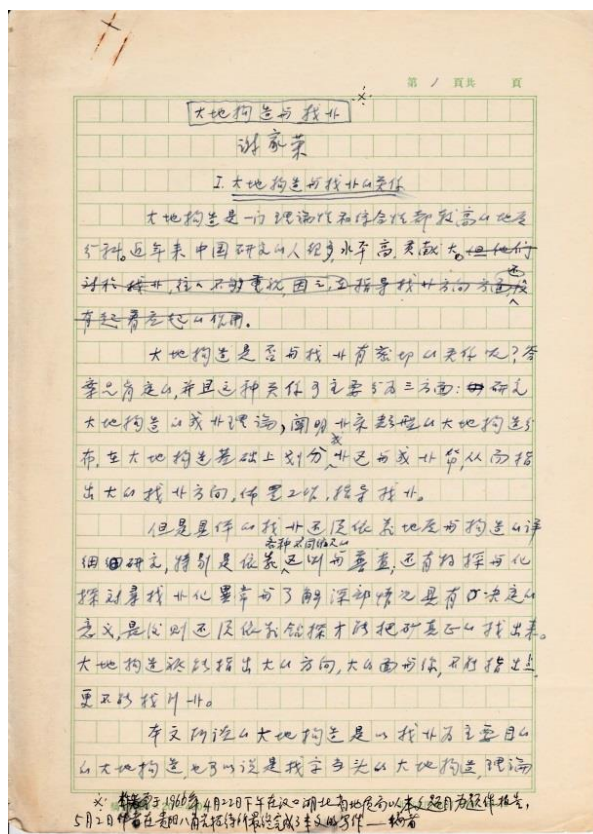 第 1 頁共 頁
※
大地构造与找卝
谢家荣
I. 大地构造与找卝的关系
大地构造是一门理论性和综合性都较高的地质
分科。近年来中国研究的人很多,水平高,贡献大。但他们
对于探卝,往往不够重视,因之,在指导找卝方向方面还没
有起着应起的作用。
大地构造是否与找卝有密切的关系呢?答
案是肯定的,并且这种关系可主要分为三方面:研究
大地构造的成卝理论,阐明卝床类型的大地构造分
布,在大地构造基础上划分成卝区与成卝节,从而指
出大的找卝方向,布置工作,指导找卝。
但是具体的找卝还须依靠地质与构造的详
细研究,特别是依靠各种不同比例尺的区测与普查,还有物探与化
探对寻找卝化异常与了解深部情况具有决定的
意义,最后则还须依靠钻探才能把矿真正的找出来。
大地构造只能指出大的方向,大的面与线,不能指出点,
更不能找到卝。
本文所论的大地构造是以找卝为主要目的
的大地构造,也可以说是找字当头的大地构造,理论
※ 作者于1966年4月22日下午在汉口湖北省地质局以本文题目为题作报告,
5月2日作者在贵阳八角岩招待所最后完成了本文的写作——编者